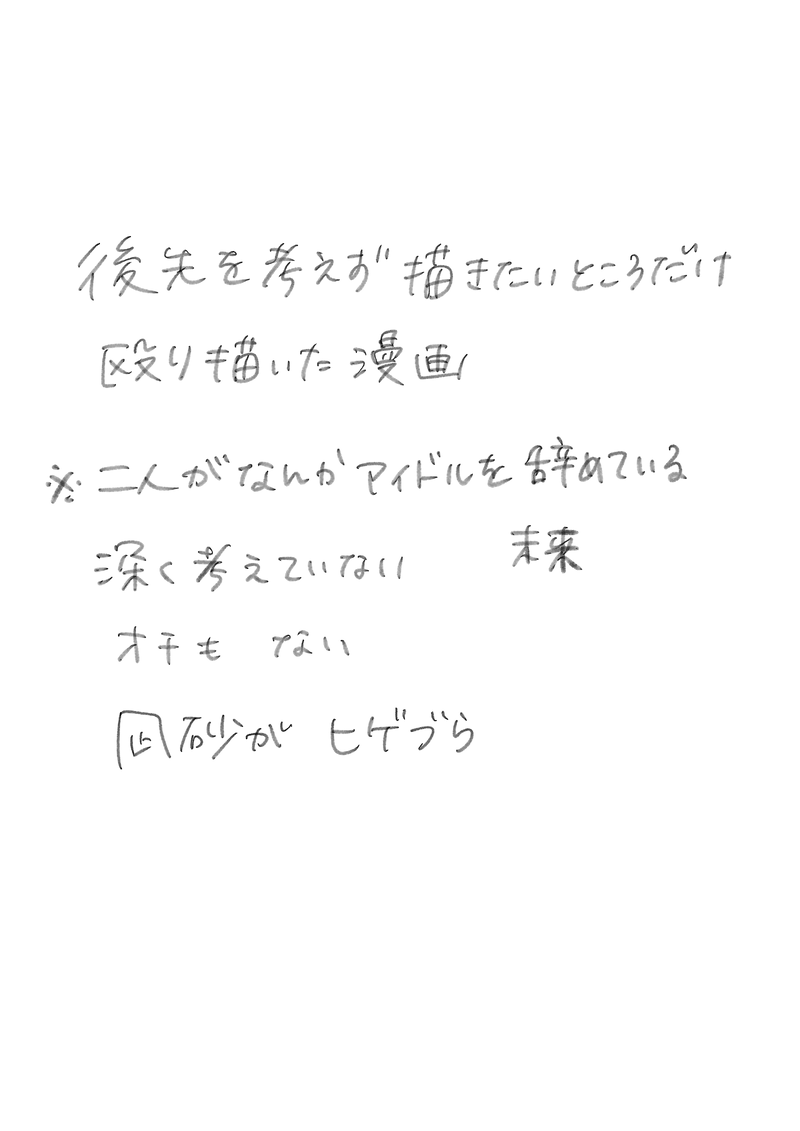 後先を考えず描きたいところだけ
殴り描いた漫画
※二人がなんかアイドルを辞めている
未来
深く考えていない
オチもない
凪砂がヒゲづら